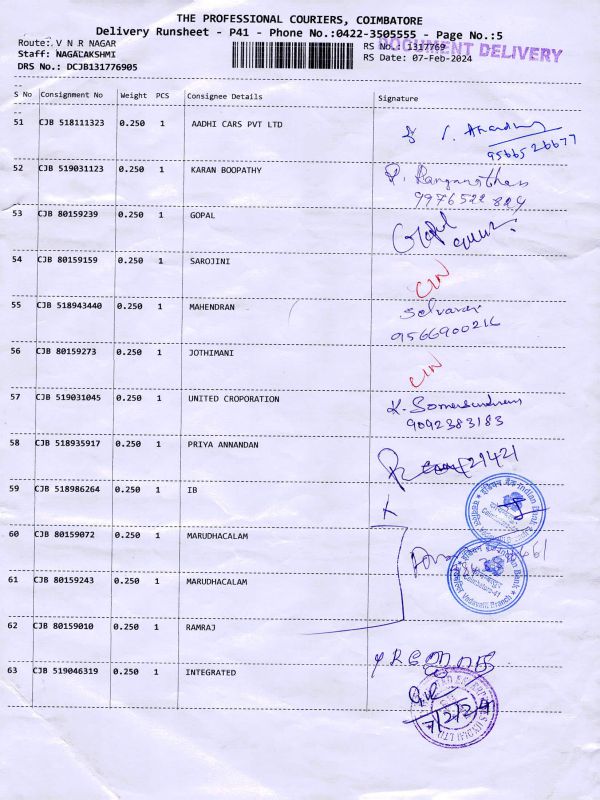 THE PROFESSIONAL COURIERS, COIMBATORE
Delivery Runsheet - P41 - Phone No.:0422-3505555 - Page No.:5
Route: V N R NAGAR
RS No.: 1317769
DOCUMENT DELIVERY
Staff: NAGALAKSHMI
RS Date: 07-Feb-2024
DRS No.: DCJB131776905
S No Consignment No Weight PCS Consignee Details Signature
51 CJB 518111323 0.250 1 AADHI CARS PVT LTD
9566526677
52 CJB 519031123 0.250 1 KARAN BOOPATHY P. Ranganathan
9976522829
53 CJB 80159239 0.250 1 GOPAL Gopal
54 CJB 80159159 0.250 1 SAROJINI CIN
55 CJB 518943440 0.250 1 MAHENDRAN Selvaraj
9566900216
56 CJB 80159273 0.250 1 JOTHIMANI CIN
57 CJB 519031045 0.250 1 UNITED CROPORATION K. Somasundram
9092383183
58 CJB 518935917 0.250 1 PRIYA ANNANDAN
59 CJB 518986264 0.250 1 IB
इंडियन बैंक Indian Bank
60 CJB 80159072 0.250 1 MARUDHACALAM
61 CJB 80159243 0.250 1 MARUDHACALAM
इंडियन बैंक Indian Bank
Coimbatore-41
Vadavalli Branch
62 CJB 80159010 0.250 1 RAMRAJ
63 CJB 519046319 0.250 1 INTEGRATED
7/2/24